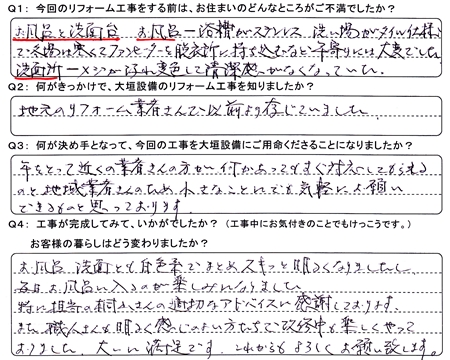 Q1：今回のリフォーム工事をする前は、お住まいのどんなところがご不満でしたか？
お風呂と洗面台　お風呂－浴槽がステンレス、洗い場がタイル仕様
で冬場は寒くてファンヒーターを脱衣所に持ち込むなど年寄りには大変でした。
洗面所－メジが汚れ変色して清潔感がなくなっていた。
Q2：何がきっかけで、大垣設備のリフォーム工事を知りましたか？
地元のリフォーム業者さんで以前より存じていました。
Q3：何が決め手となって、今回の工事を大垣設備にご用命くださることになりましたか？
年をとって近くの業者さんの方が何かあってもすぐ対応してもらえる
のと地域業者さんのため小さなことにでも気軽にお願い
できるものと思っております。
Q4：工事が完成してみて、いかがでしたか？（工事中にお気付きのことでもけっこうです。）
お客様の暮らしはどう変わりましたか？
お風呂、洗面とも白色系でまとめスキッと明るくなりましたし、
毎日お風呂に入るのが楽しみになりました。
特に担当の桐山さんの適切なアドバイスに感謝しております。
また、職人さんも明るく感じのよい方たちで改修中も楽しくやって
おりました。大いに満足です。これからもよろしくお願い致します。